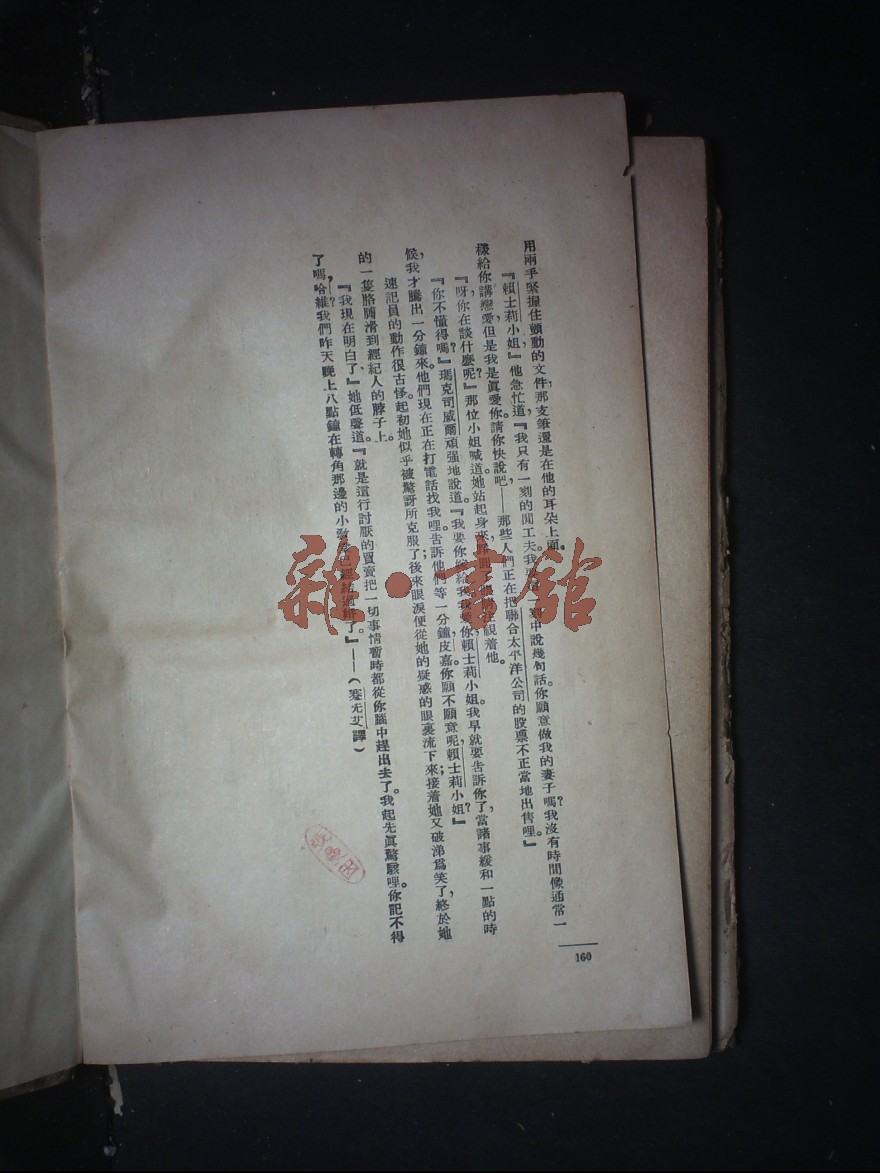 用兩手緊握住顫動的文件，那支筆還是在他的耳朵上面。
『賴士莉小姐，』他急忙道，『我只有一刻的閒工夫。我要 一刻中說幾句話。你願意做我的妻子嗎？我沒有時間像通常一
樣給你講戀愛，但是我是眞愛你。請你快說吧——那些人們正在把聯合太平洋公司的股票不正當地出售哩。』
『呀，你在談什麼呢？』那位小姐喊道。她站起身來， 視着他。
『你不懂得嗎？』瑪克司威爾頑强地說道。『我要你嫁給我。我愛你，賴士莉小姐。我早就要告訴你了，當諸事緩和一點的時
候，我才騰出一分鐘來。他們現在正在打電話找我哩。告訴他們等一分鐘，皮嘉。你願不願意呢，賴士莉小姐？』
速記員的動作很古怪。起初她似乎被驚訝所克服了；後來眼淚便從她的疑惑的眼裏流下來；接着她又破涕爲笑了，終於她
的一隻胳膊滑到經紀人的脖子上。
『我現在明白了，』她低聲道。『就是這行討厭的買賣把一切事情暫時都從你腦中趕出去了。我起先眞驚駭哩。你記不得
了嗎，哈維？我們昨天晚上八點鐘在轉角那邊的小敎 已經結過婚了。』——（蹇先艾譯）
160
雜·書館